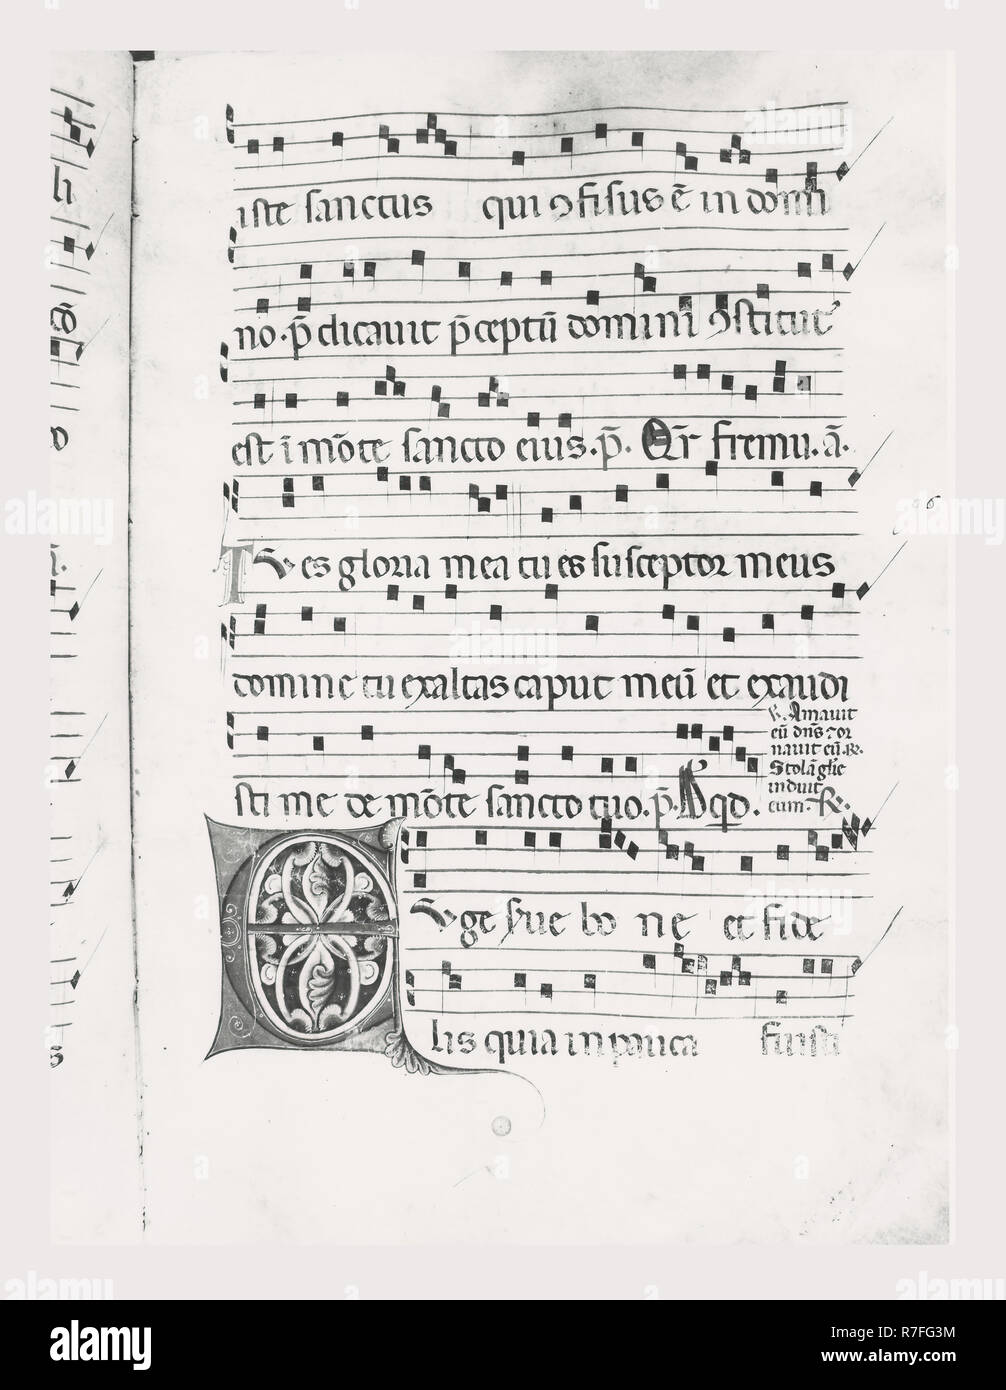 iste sanctus qui ꝯfisus ē in domi
no. p̄dicauit p̄ceptū domini ꝯstitut᾿
est ī mōte sancto eius. p̄. Qr̄ fremu. ā.
TV es gloria mea tu es susceptor meus
domine tu exaltas caput meū et exaudi
sti me de mōte sancto tuo. p̄.
℣. Amauit
eū dn̄s ⁊ or
nauit eū. ℞.
Stolā glīe
induit
eum. ℞.
EVge serue bone et fide
lis quia in pauca fuisti
alamy
Image ID: R7FG3M
www.alamy.com